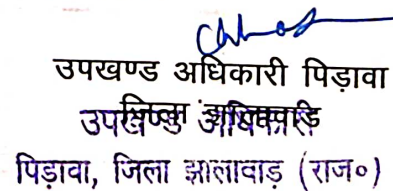 उपखण्ड अधिकारी पिड़ावा
जिला झालावाड़
उपखण्ड अधिकारी
पिड़ावा, जिला झालावाड़ (राज०)